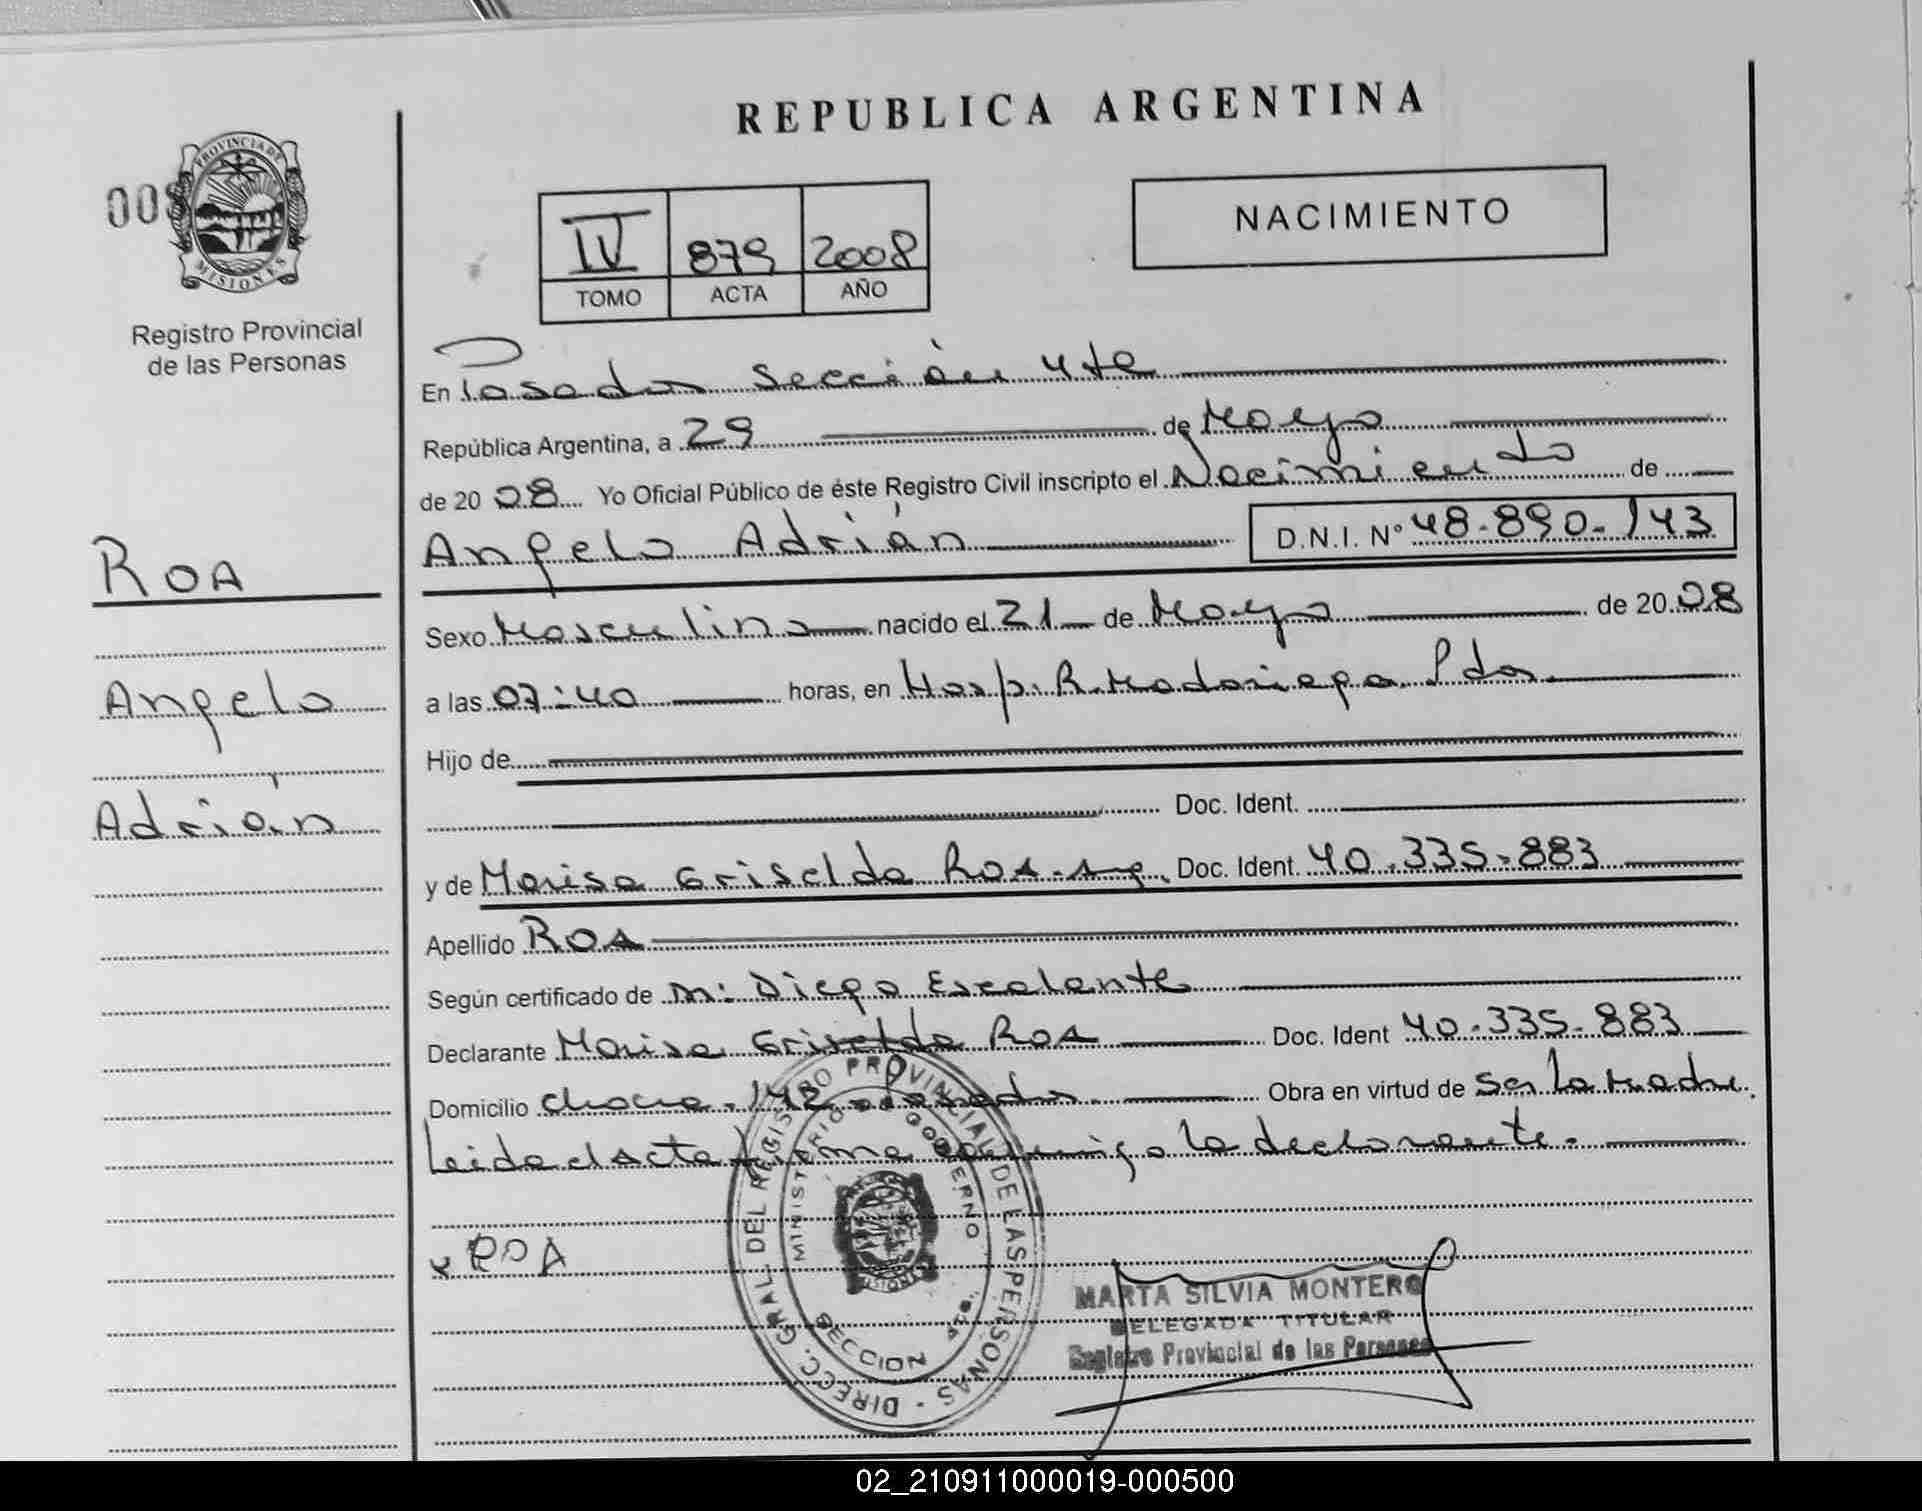 REPUBLICA ARGENTINA
PROVINCIA DE MISIONES
Registro Provincial
de las Personas
NACIMIENTO
IV 879 2008
TOMO ACTA AÑO
En Posadas Sección 4te
República Argentina, a 29 de Mayo
de 2008 Yo Oficial Público de éste Registro Civil inscripto el Nacimiento de
Angelo Adrián D.N.I. Nº 48.890.143
ROA
Angelo
Adrián
Sexo Masculino nacido el 21 de Mayo de 2008
a las 07:40 horas, en Hosp. R. Madariaga Pdas.
Hijo de
Doc. Ident.
y de Marisa Griselda Roa Doc. Ident. 40.335.883
Apellido ROA
Según certificado de M: Diego Escalante
Declarante Marisa Griselda Roa Doc. Ident 40.335.883
Domicilio chacra 148 Posadas. Obra en virtud de Ser la Madre.
Leida el Acta firma conmigo la declarante.
x ROA
DIRECC. GRAL. DEL REGISTRO PROVINCIAL DE LAS PERSONAS
MINISTERIO GOBIERNO
MISIONES
SECCION
MARTA SILVIA MONTERO
DELEGADA TITULAR
Registro Provincial de las Personas
02_210911000019-000500